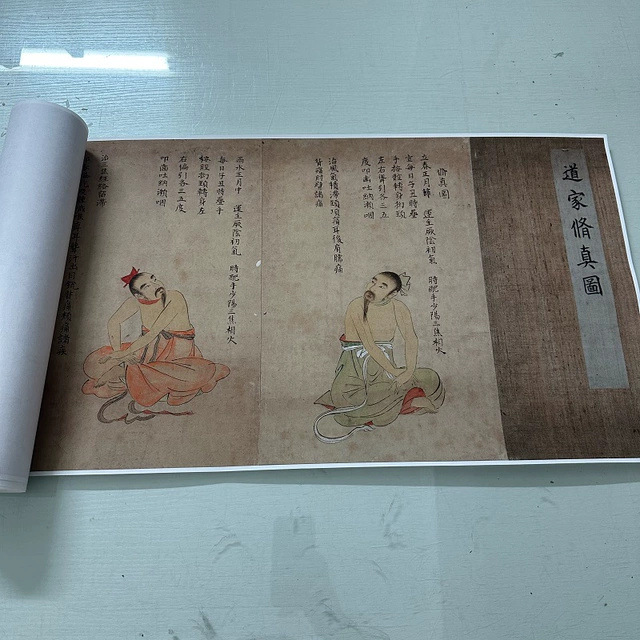 道家脩真圖
脩真圖
立春正月節 運主厥陰初氣 時配手少陽三焦相火
宜每日子丑時疊
手按髀轉身拗頸
左右聳引各三五
度叩齒吐納漱咽
治風氣積滯頸項痛耳後肩臑痛
背痛肘臂諸痛
雨水正月中 運主厥陰初氣 時配手少陽三焦相火
每日子丑時疊手
按髀拗頸轉身左
右偏引各三五度
叩齒吐納漱咽